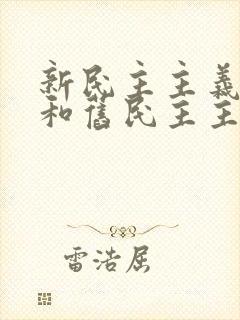 新民主主義
和舊民主主
雷浩屈